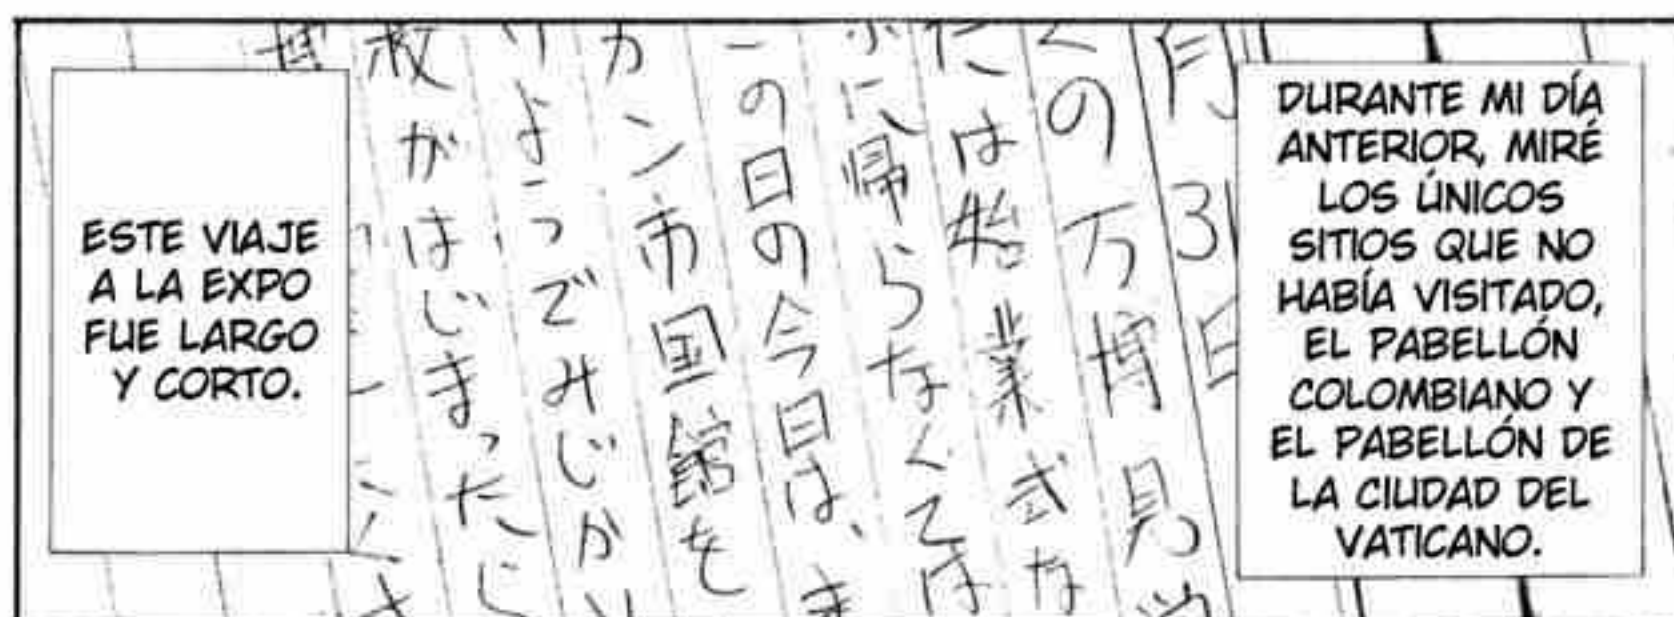 DURANTE MI DÍA
ANTERIOR, MIRÉ
LOS ÚNICOS
SITIOS QUE NO
HABÍA VISITADO,
EL PABELLÓN
COLOMBIANO Y
EL PABELLÓN DE
LA CIUDAD DEL
VATICANO.
月31日
の万博見
は始業式な
に帰らなくては
の日の今日は、ま
カン市国館を
ようでみじか
がはじまった
ESTE VIAJE
A LA EXPO
FUE LARGO
Y CORTO.